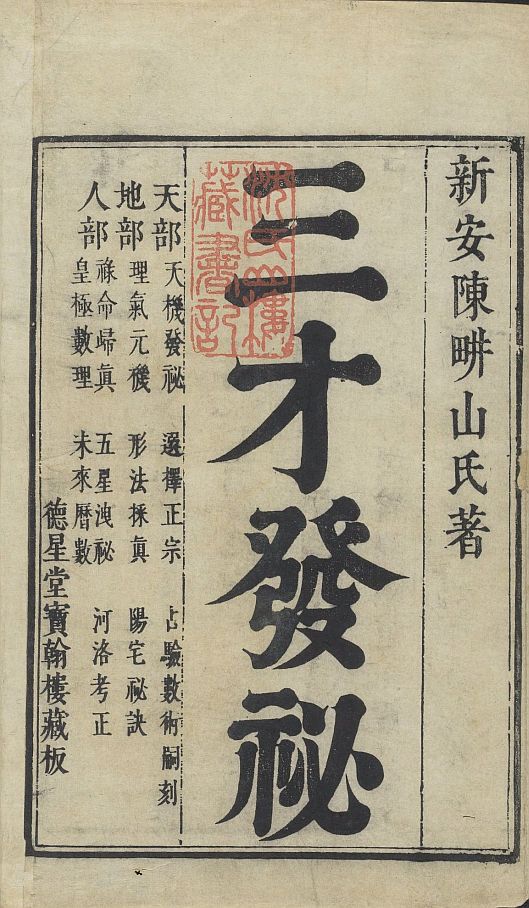 新安陳畊山氏著
三才發祕
天部 天機發祕 選擇正宗 占驗數術嗣刻
地部 理氣元機 形法採真 陽宅祕訣
人部 祿命歸眞 五星洩祕 河洛考正
皇極數理 未來曆數
德星堂寶翰樓藏板
藏書記